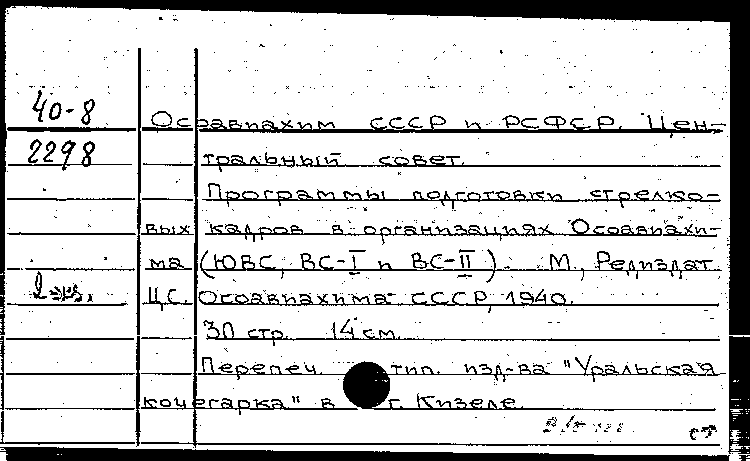 40-8
Осоавиахим СССР и РСФСР. Цен-
2298
тральный совет.
Программы подготовки стрелко-
вых кадров в организациях Осоавиахи-
ма (ЮВС, ВС-I и ВС-II). М., Редиздат
2 экз.
ЦС. Осоавиахима СССР, 1940.
30 стр. 14 см.
Перепеч. тип. изд-ва "Уральская
кочегарка" в г. Кизеле.